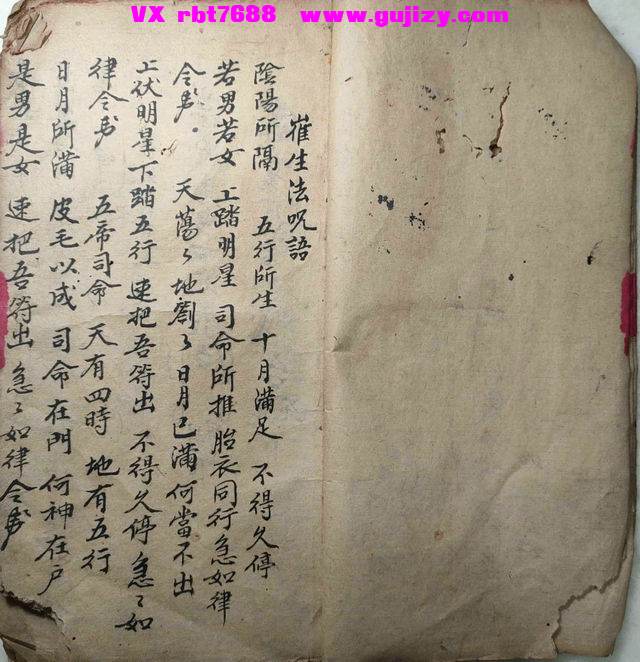 VX rbt7688 www.gujizy.com
崔生法呪語
陰陽所隔 五行所生 十月滿足 不得久停
若男若女 上踏明星 司命所推 胎衣同行急如律
令 天蕩〻地劉〻日月已滿何當不出
上伏明星下踏五行 速把吾符出 不得久停 急〻如
律令 五帝司命 天有四時 地有五行
日月所滿 皮毛以成 司命在門 何神在戶
是男是女 速把吾符出 急〻如律令